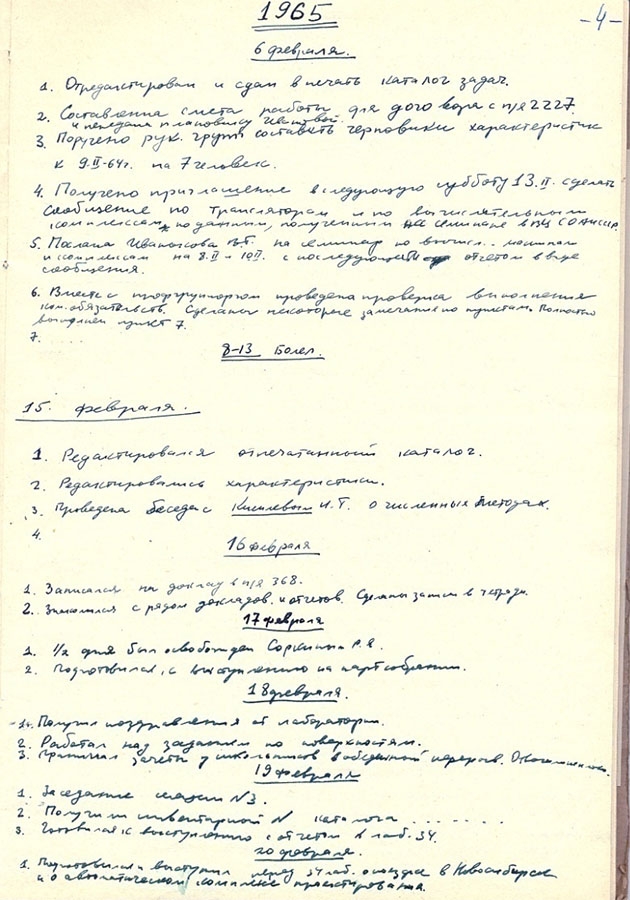 1965
-4-
6 февраля.
1. Отредактирован и сдан в печать каталог задач.
2. Составлена смета работы для договора с п/я 2227.
и передана плановику
3. Поручено рук. групп составить черновики характеристик
к 9.II-64г. на 7 человек.
4. Получено приглашение в следующую субботу 13.II. сделать
сообщение по трансляторам и по вычислительным
комплексам, по данным, полученным на семинаре в ВЦ СО АН СССР
5. Послана В.Г. на семинар по вычисл. машинам
и комплексам на 8.II и 10.II. с последующим отчетом в виде
сообщения.
6. Вместе с профгрупоргом проведена проверка выполнения
ком. обязательств. Сделаны некоторые замечания по пунктам. Полностью
выполнен пункт 7.
7.
8-13 Болел.
15. февраля.
1. Редактировался отпечатанный каталог.
2. Редактировались характеристики.
3. Проведена беседа с И.Т. о численных методах.
4.
16 февраля
1. Записался на доклад в п/я 368.
2. Знакомился с рядом докладов и отчетов. Сделаны записи в тетради.
17 февраля
1. 1/2 дня был освобожден Р.Я.
2. Подготовился к выступлению на партсобрании.
18 февраля.
1. Получил поздравления от лаборатории.
2. Работал над заданием по поверхностям.
3. Принимал зачеты у школьников в обеденный перерыв.
19 февраля
1. Заседание секции N3.
2. Получили инвентарный N каталога . . . . . . .
3. Готовился к выступлению с отчетом в лаб. 34.
20 февраля.
1. Подготовился и выступил перед 34 лаб. о поездке в Новосибирск
и о автоматическом комплексе проектирования.